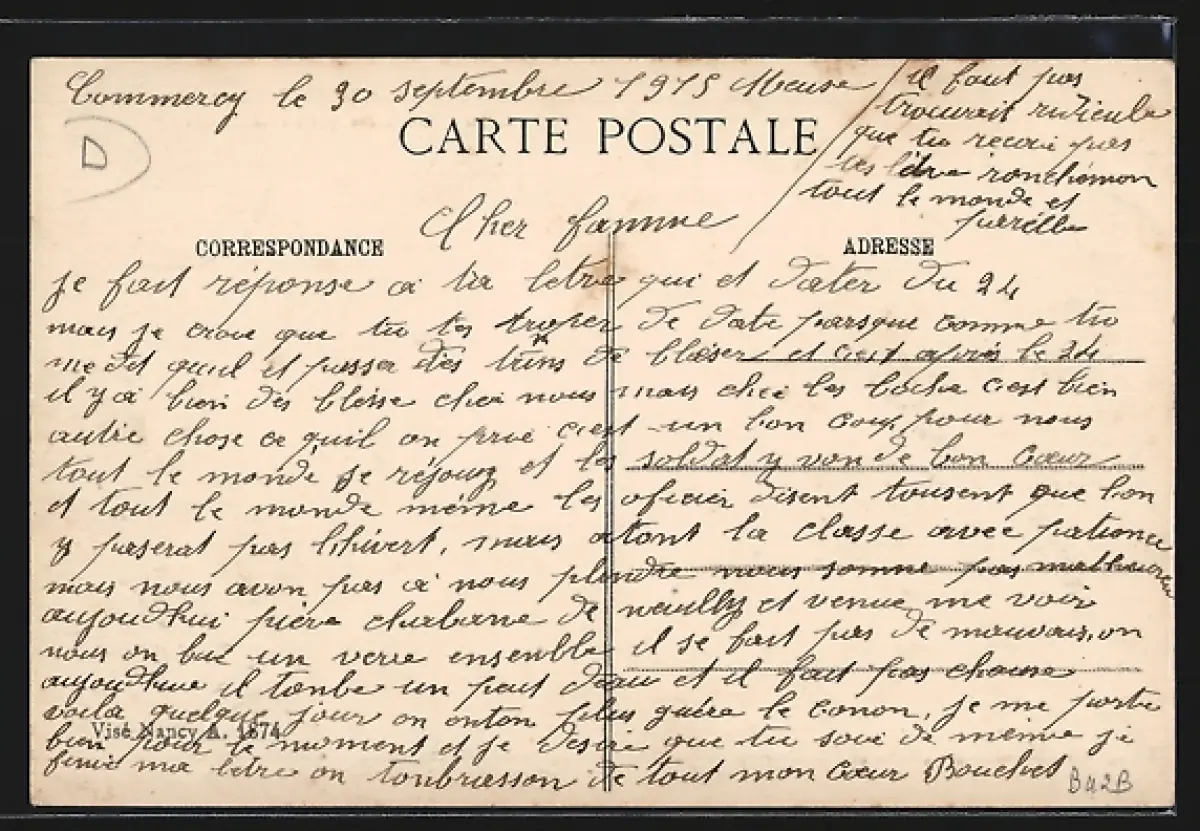 Commercy le 30 septembre 1915 Meuse
il faut pas
trouvait ridicule
que tu recoi pas
les létre ronchémon
tout le monde et
pareille
CARTE POSTALE
D
Cher famme
CORRESPONDANCE
ADRESSE
je fait réponse a ta letre qui et dater du 24
mais je croie que tu tes troper de date parsque comme tu
me dit quil et passer des trins de bléser et cest aprés le 24
il y a bien des blésse chei nous mais chei les boche c'est bien
autre chose ce quil on prie c'est un bon coup pour nous
tout le monde se réjouy et les soldat y von de bon cœur
et tout le monde méme les oficier disent tousent que lon
y paserat pas lhivert, mais atont la classe avec patience
mais nous avon pas a nous plindre nous somme pas malheureu
aujourdhui piére chabanne de neuilly et venue me voir
nous on bue un verre ensenble il se fait pas de mauvais, on
aujourdhui il tonbe un peut deau et il fait pas chause
voila quelque jour on onton plus guére le conon, je me porte
bien pour le moment et je desire que tu soie de méme je
finie ma letre on tonbrasson de tout mon cœur Bouchet
Visé Nancy A. 1874
B42B